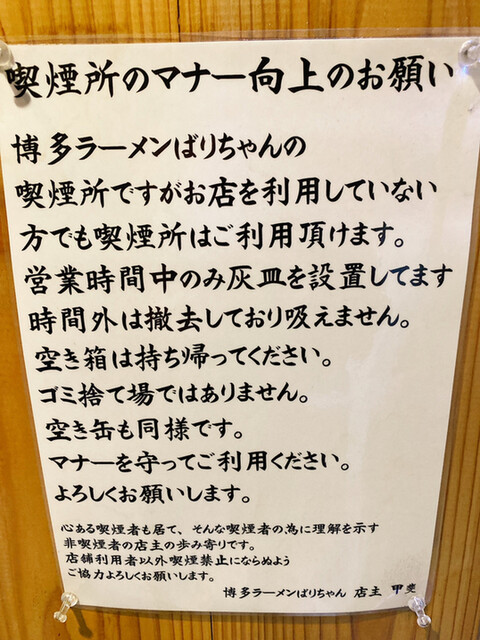 喫煙所のマナー向上のお願い
博多ラーメンばりちゃんの
喫煙所ですがお店を利用していない
方でも喫煙所はご利用頂けます。
営業時間中のみ灰皿を設置してます
時間外は撤去しており吸えません。
空き箱は持ち帰ってください。
ゴミ捨て場ではありません。
空き缶も同様です。
マナーを守ってご利用ください。
よろしくお願いします。
心ある喫煙者も居て、そんな喫煙者の為に理解を示す
非喫煙者の店主の歩み寄りです。
店舗利用者以外喫煙禁止にならぬよう
ご協力よろしくお願いします。
博多ラーメンばりちゃん 店主 甲斐